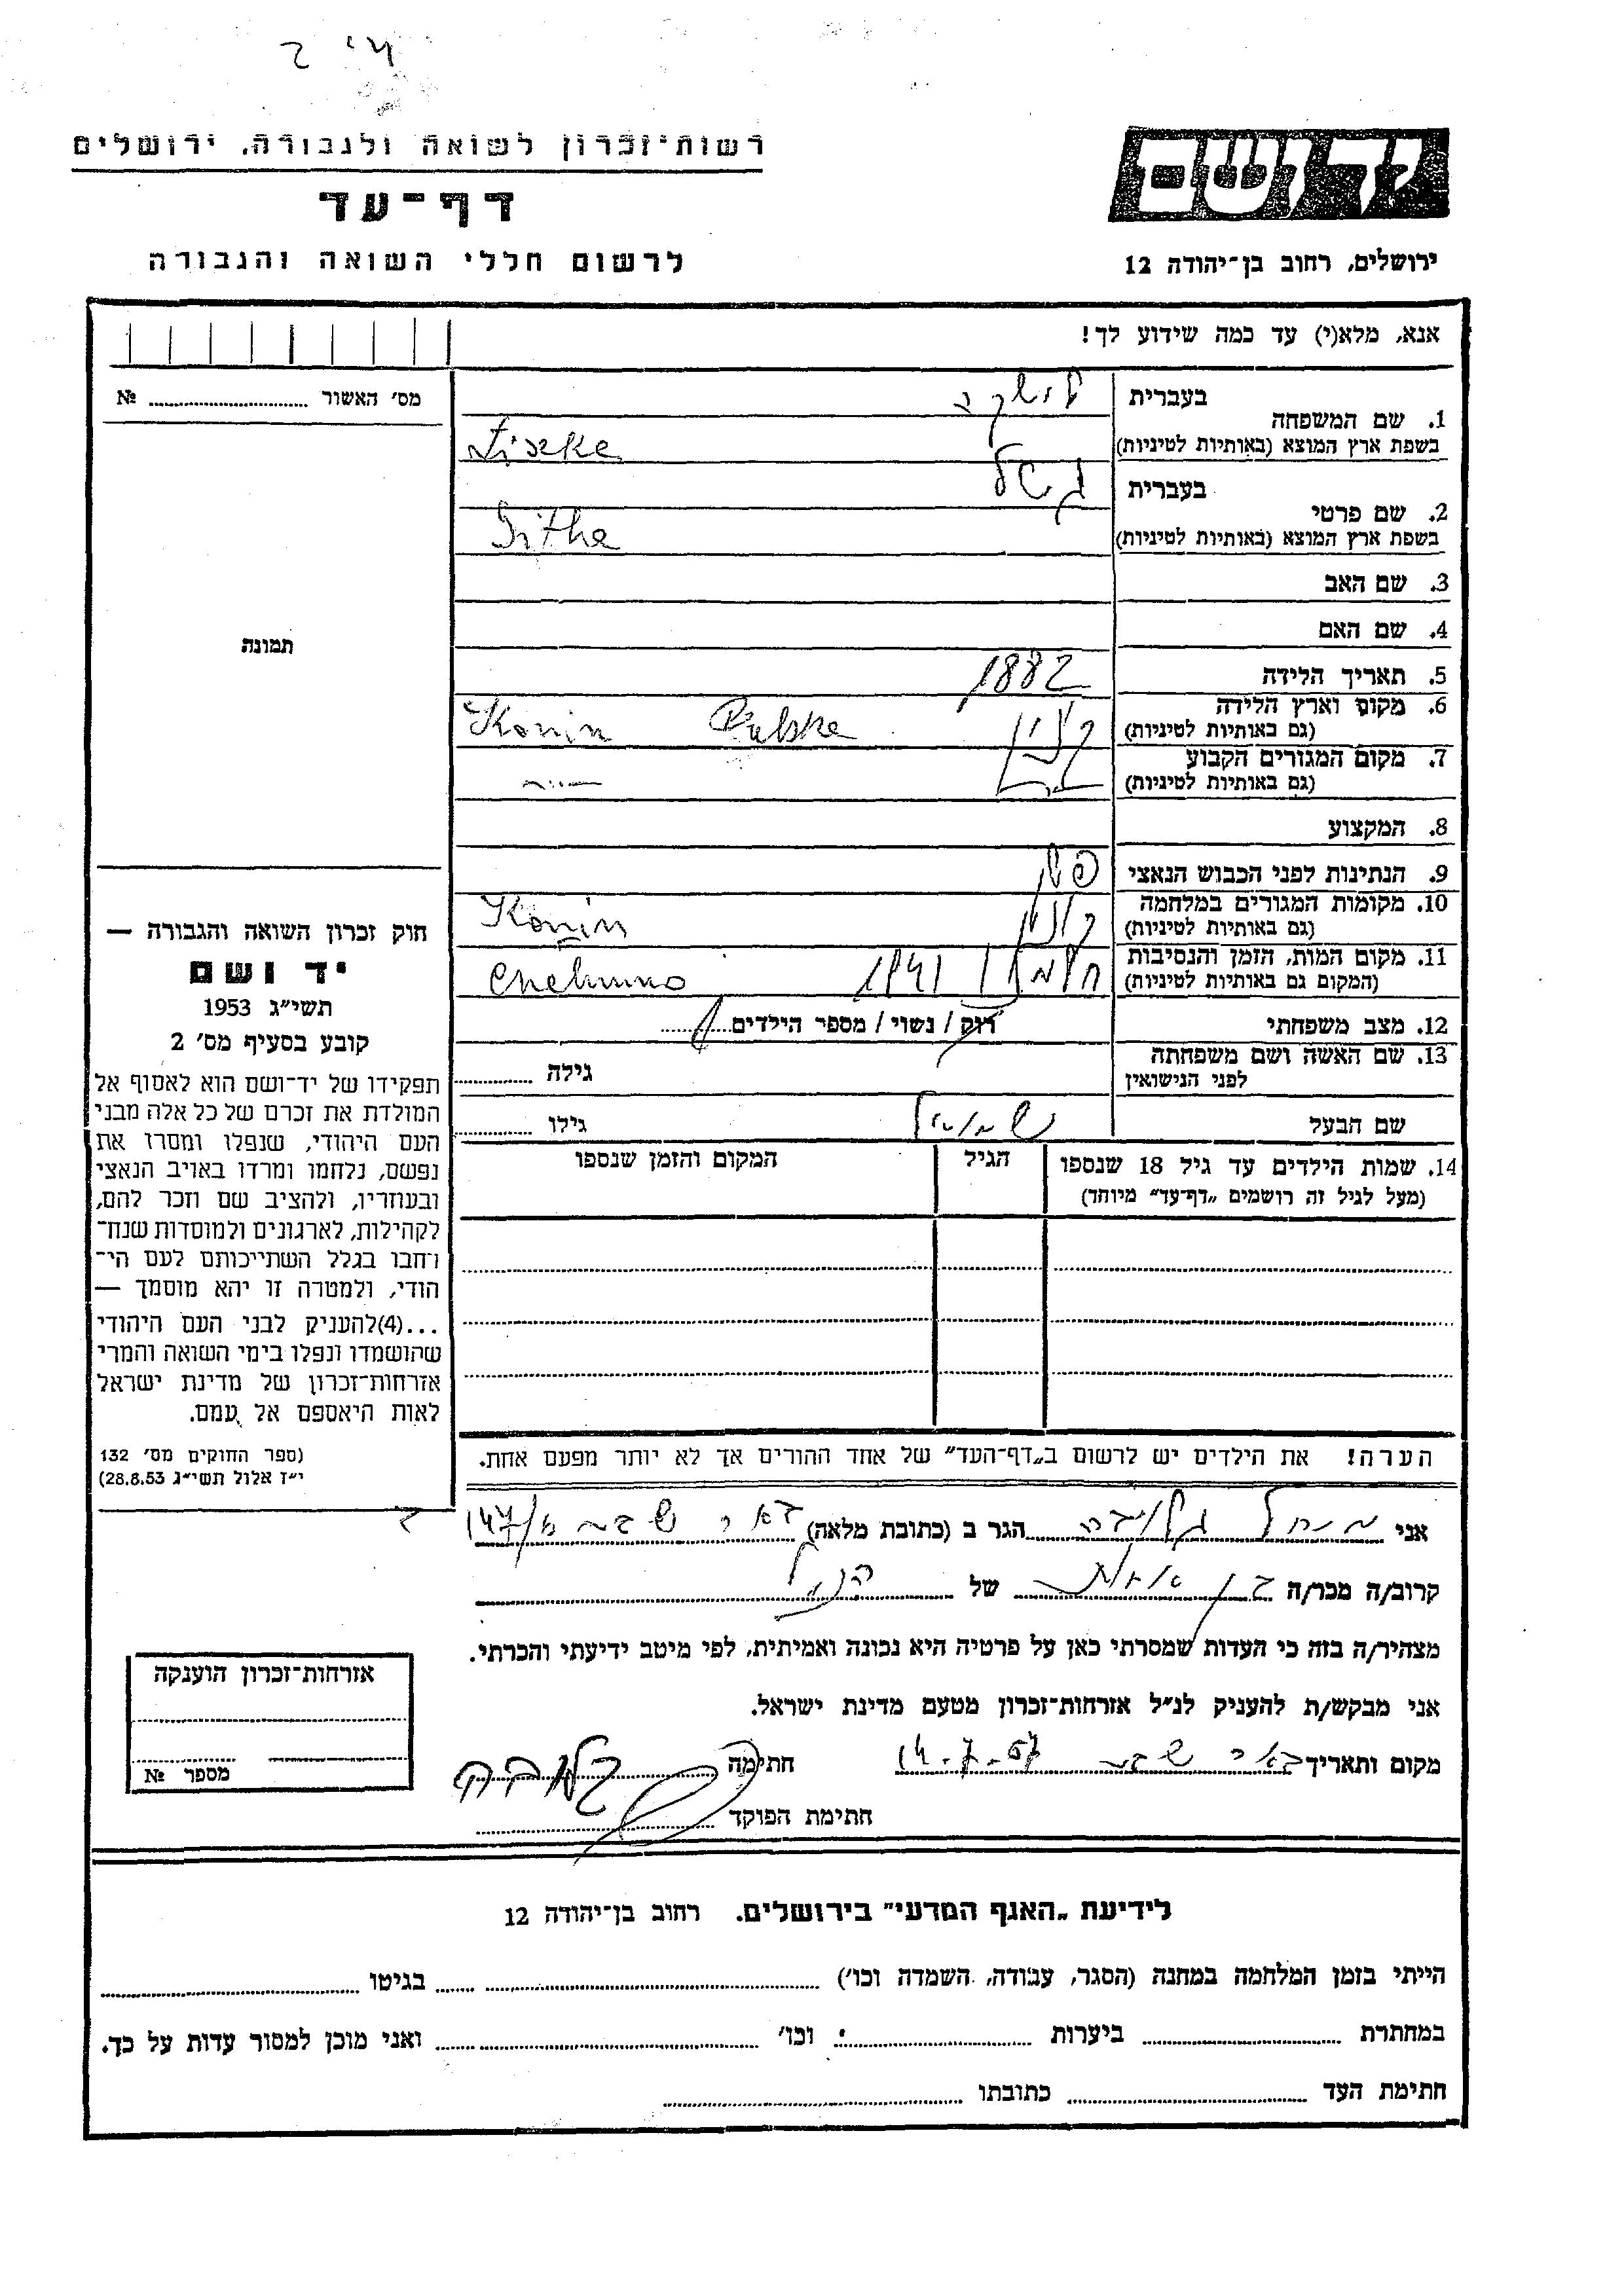 רשות־זכרון לשואה ולגבורה, ירושלים
יד ושם
דף־עד
לרשום חללי השואה והגבורה
ירושלים, רחוב בן־יהודה 12
אנא, מלא(י) עד כמה שידוע לך!
מס׳ האשור № ....................
תמונה
1. שם המשפחה
בעברית
בשפת ארץ המוצא (באותיות לטיניות) Liszke
2. שם פרטי
בעברית
בשפת ארץ המוצא (באותיות לטיניות)
3. שם האב
4. שם האם
5. תאריך הלידה 1882
6. מקום וארץ הלידה
(גם באותיות לטיניות) קונין Konin
7. מקום המגורים הקבוע
(גם באותיות לטיניות)
8. המקצוע
9. הנתינות לפני הכבוש הנאצי
10. מקומות המגורים במלחמה
(גם באותיות לטיניות) קונין Konin
11. מקום המות, הזמן והנסיבות
(המקום גם באותיות לטיניות) 1941
12. מצב משפחתי רוק / נשוי / מספר הילדים
13. שם האשה ושם משפחתה
לפני הנישואין
גילה
שם הבעל
גילו
14. שמות הילדים עד גיל 18 שנספו
(מעל לגיל זה רושמים „דף־עד״ מיוחד)
הגיל
המקום והזמן שנספו
חוק זכרון השואה והגבורה —
יד ושם
תשי״ג 1953
קובע בסעיף מס׳ 2
תפקידו של יד־ושם הוא לאסוף אל
המולדת את זכרם של כל אלה מבני
העם היהודי, שנפלו ומסרו את
נפשם, נלחמו ומרדו באויב הנאצי
ובעוזריו, ולהציב שם וזכר להם,
לקהילות, לארגונים ולמוסדות שנח־
רבו בגלל השתייכותם לעם הי־
הודי, ולמטרה זו יהא מוסמך —
...(4)להעניק לבני העם היהודי
שהושמדו ונפלו בימי השואה והמרי
אזרחות־זכרון של מדינת ישראל
לאות היאספם אל עמם.
(ספר החוקים מס׳ 132
י״ז אלול תשי״ג 28.8.53)
הערה! את הילדים יש לרשום ב„דף־העד״ של אחד ההורים אך לא יותר מפעם אחת.
אני הגר ב (כתובת מלאה) באר שבע
קרוב/ה מכר/ה של הנ״ל
מצהיר/ה בזה כי העדות שמסרתי כאן על פרטיה היא נכונה ואמיתית, לפי מיטב ידיעתי והכרתי.
אני מבקש/ת להעניק לנ״ל אזרחות־זכרון מטעם מדינת ישראל.
מקום ותאריך באר שבע 14-7-57 חתימה
חתימת הפוקד
אזרחות־זכרון הוענקה
מספר №
לידיעת „האגף המדעי״ בירושלים. רחוב בן־יהודה 12
הייתי בזמן המלחמה במחנה (הסגר, עבודה, השמדה וכו׳) בגיטו
במחתרת ביערות וכו׳ ואני מוכן למסור עדות על כך.
חתימת העד כתובתו